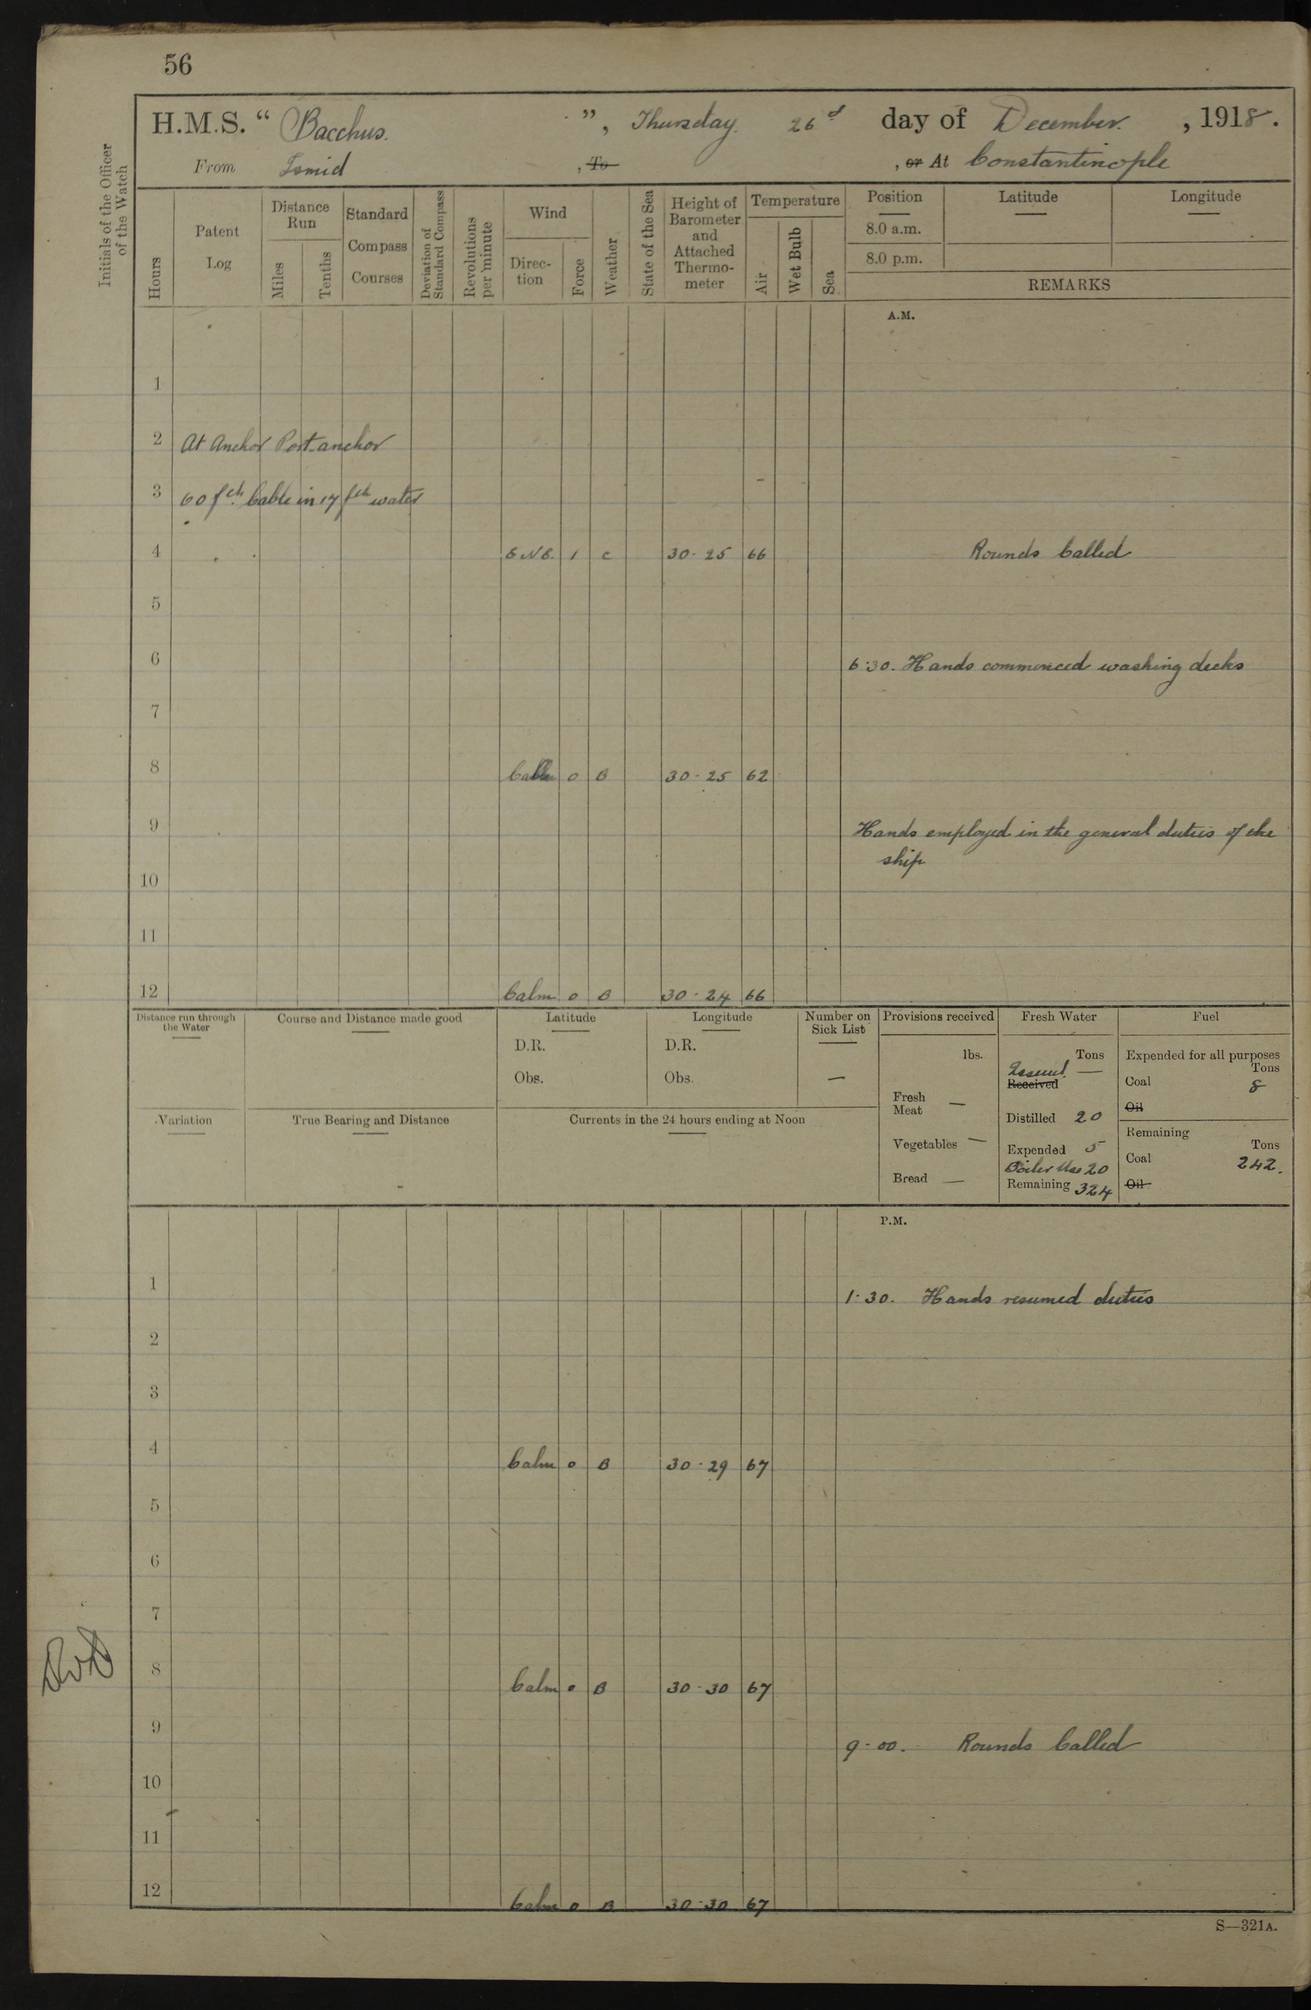 56
H.M.S. “ Bacchus. ”, Thursday 26 d day of December. , 1918.
From Ismid , To , or At Constantinople
Initials of the Officer of the Watch
Hours
Patent Log
Distance Run
Miles
Tenths
Standard Compass Courses
Deviation of Standard Compass
Revolutions per minute
Wind
Direc-tion
Force
Weather
State of the Sea
Height of Barometer and Attached Thermo-meter
Temperature
Air
Wet Bulb
Sea
Position
8.0 a.m.
8.0 p.m.
Latitude
Longitude
REMARKS
A.M.
1
2 At Anchor Port anchor
3 60 fth. Cable in 17 fth water
4 ENE. 1 c 30·25 66 Rounds Called
5
6 6·30. Hands commenced washing decks
7
8 Calm 0 B 30·25 62
9 Hands employed in the general duties of the
ship
10
11
12 Calm 0 B 30·24 66
Distance run through the Water
Course and Distance made good
Latitude
D.R.
Obs.
Longitude
D.R.
Obs.
Number on Sick List
—
Variation
True Bearing and Distance
Currents in the 24 hours ending at Noon
Provisions received
lbs.
Fresh Meat —
Vegetables —
Bread —
Fresh Water
Tons
Received —
Distilled 20
Expended 5
Boiler Use 20
Remaining 324
Fuel
Expended for all purposes
Tons
Coal 8
Oil
Remaining
Tons
Coal 242.
Oil
P.M.
1 1·30. Hands resumed duties
2
3
4 Calm 0 B 30·29 67
5
6
7
8 Calm 0 B 30·30 67
9 9·00. Rounds Called
10
11
12 Calm 0 B 30·30 67
S—321A.